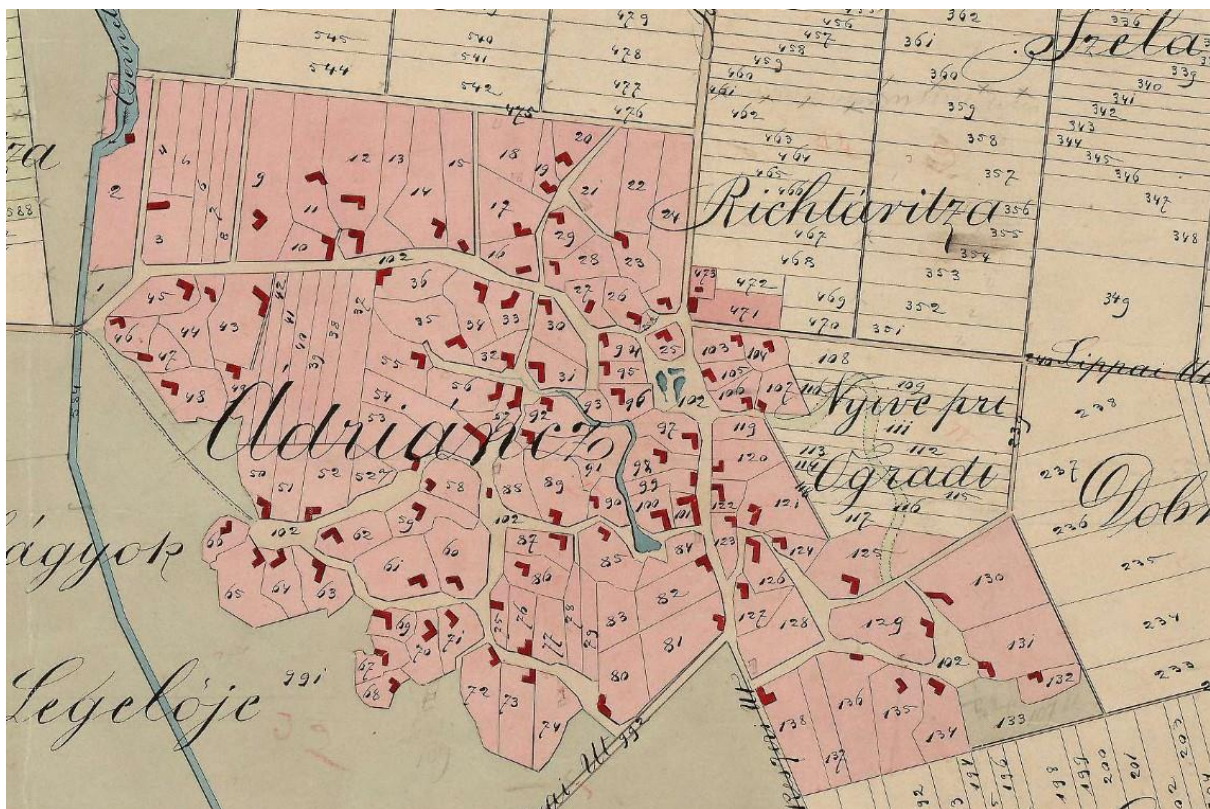 Szela
Richtáritza
Adriáncz
Nyive pri
Ogradi
Lippai Ut
Legelöje
479
545
540
478
544
541
542
477
476
475
456
457
458
459
460
461
462
463
464
465
466
467
468
469
470
471
472
473
362
361
360
359
358
357
356
355
354
353
352
351
336
339
340
341
342
343
344
345
346
347
348
349
1
2
3
4
8
9
10
11
12
13
14
15
16
17
18
19
20
21
22
23
24
25
26
27
28
29
30
31
32
33
34
35
36
37
38
39
40
41
42
43
44
45
46
47
48
49
50
51
52
53
54
55
56
57
58
59
60
61
62
63
64
65
66
67
68
69
70
71
72
73
74
76
77
78
79
80
81
82
83
84
85
86
87
88
89
90
91
92
93
94
95
96
97
98
99
100
101
102
102
102
102
102
103
104
105
106
107
108
109
110
111
112
113
114
115
116
117
119
120
121
122
123
124
125
126
127
128
129
130
131
132
133
134
135
136
137
138
233
234
235
236
237
238
239
584
588
991
992
198
199
200
201
203